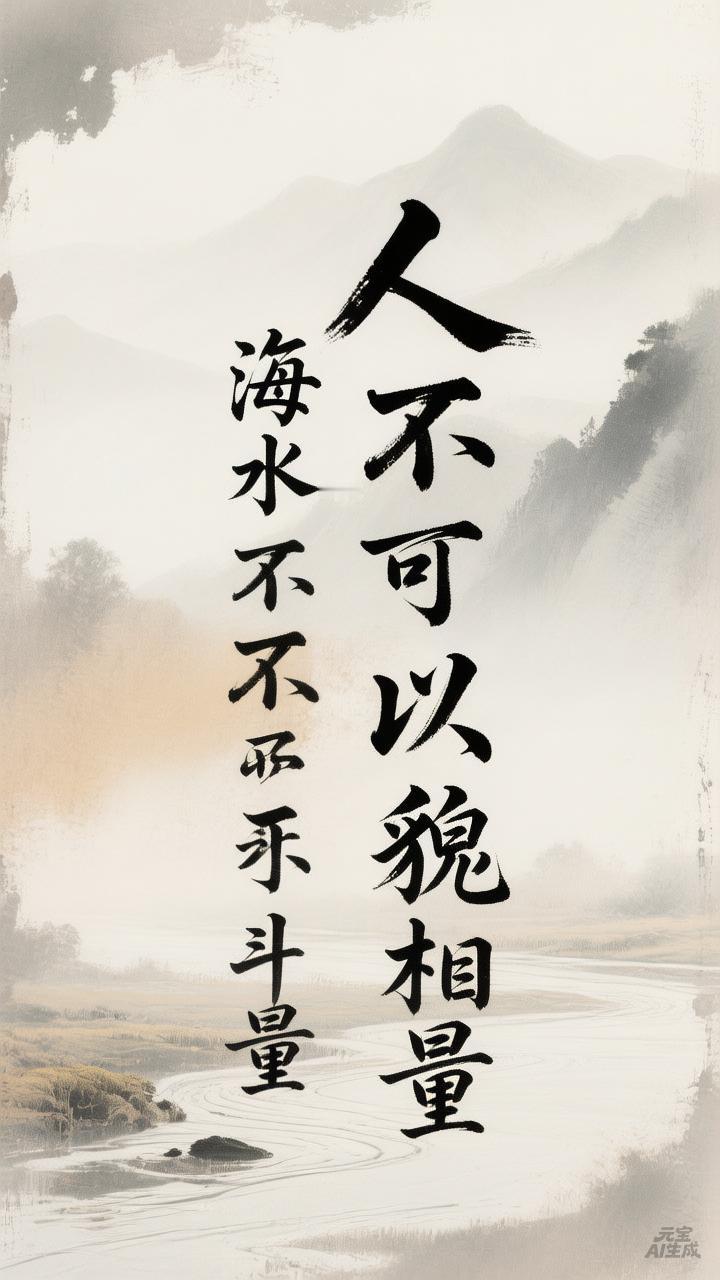 人不可以貌相量
海水不不斗量
元宝
AI生成